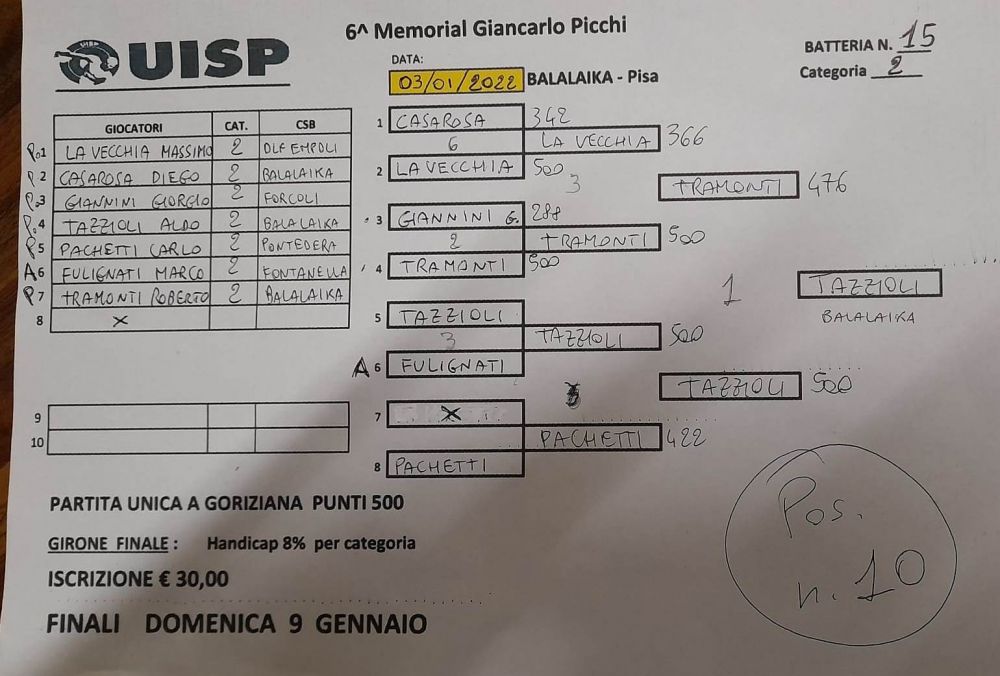 UISP
6^ Memorial Giancarlo Picchi
DATA:
03/01/2022 BALALAIKA - Pisa
BATTERIA N. 15
Categoria 2
GIOCATORI CAT. CSB
P.1 LA VECCHIA MASSIMO 2 DLF EMPOLI
P 2 CASAROSA DIEGO 2 BALALAIKA
P.3 GIANNINI GIORGIO 2 FORCOLI
P.4 TAZZIOLI ALDO 2 BALALAIKA
P5 PACHETTI CARLO 2 PONTEDERA
A6 FULIGNATI MARCO 2 FONTANELLA
P7 TRAMONTI ROBERTO 2 BALALAIKA
8 X
9
10
1 CASAROSA 342
6 LA VECCHIA 366
2 LA VECCHIA 500
3 TRAMONTI 476
3 GIANNINI G. 288
2 TRAMONTI 500
4 TRAMONTI 500
1 TAZZIOLI
BALALAIKA
5 TAZZIOLI
3 TAZZIOLI 500
A 6 FULIGNATI
TAZZIOLI 500
7 X
PACHETTI 422
8 PACHETTI
PARTITA UNICA A GORIZIANA PUNTI 500
GIRONE FINALE : Handicap 8% per categoria
ISCRIZIONE € 30,00
FINALI DOMENICA 9 GENNAIO
Pos.
n. 10